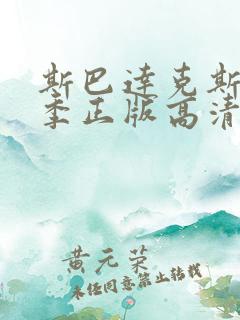 斯巴达克斯
季正版高清
黄元荣
未经同意禁止转载